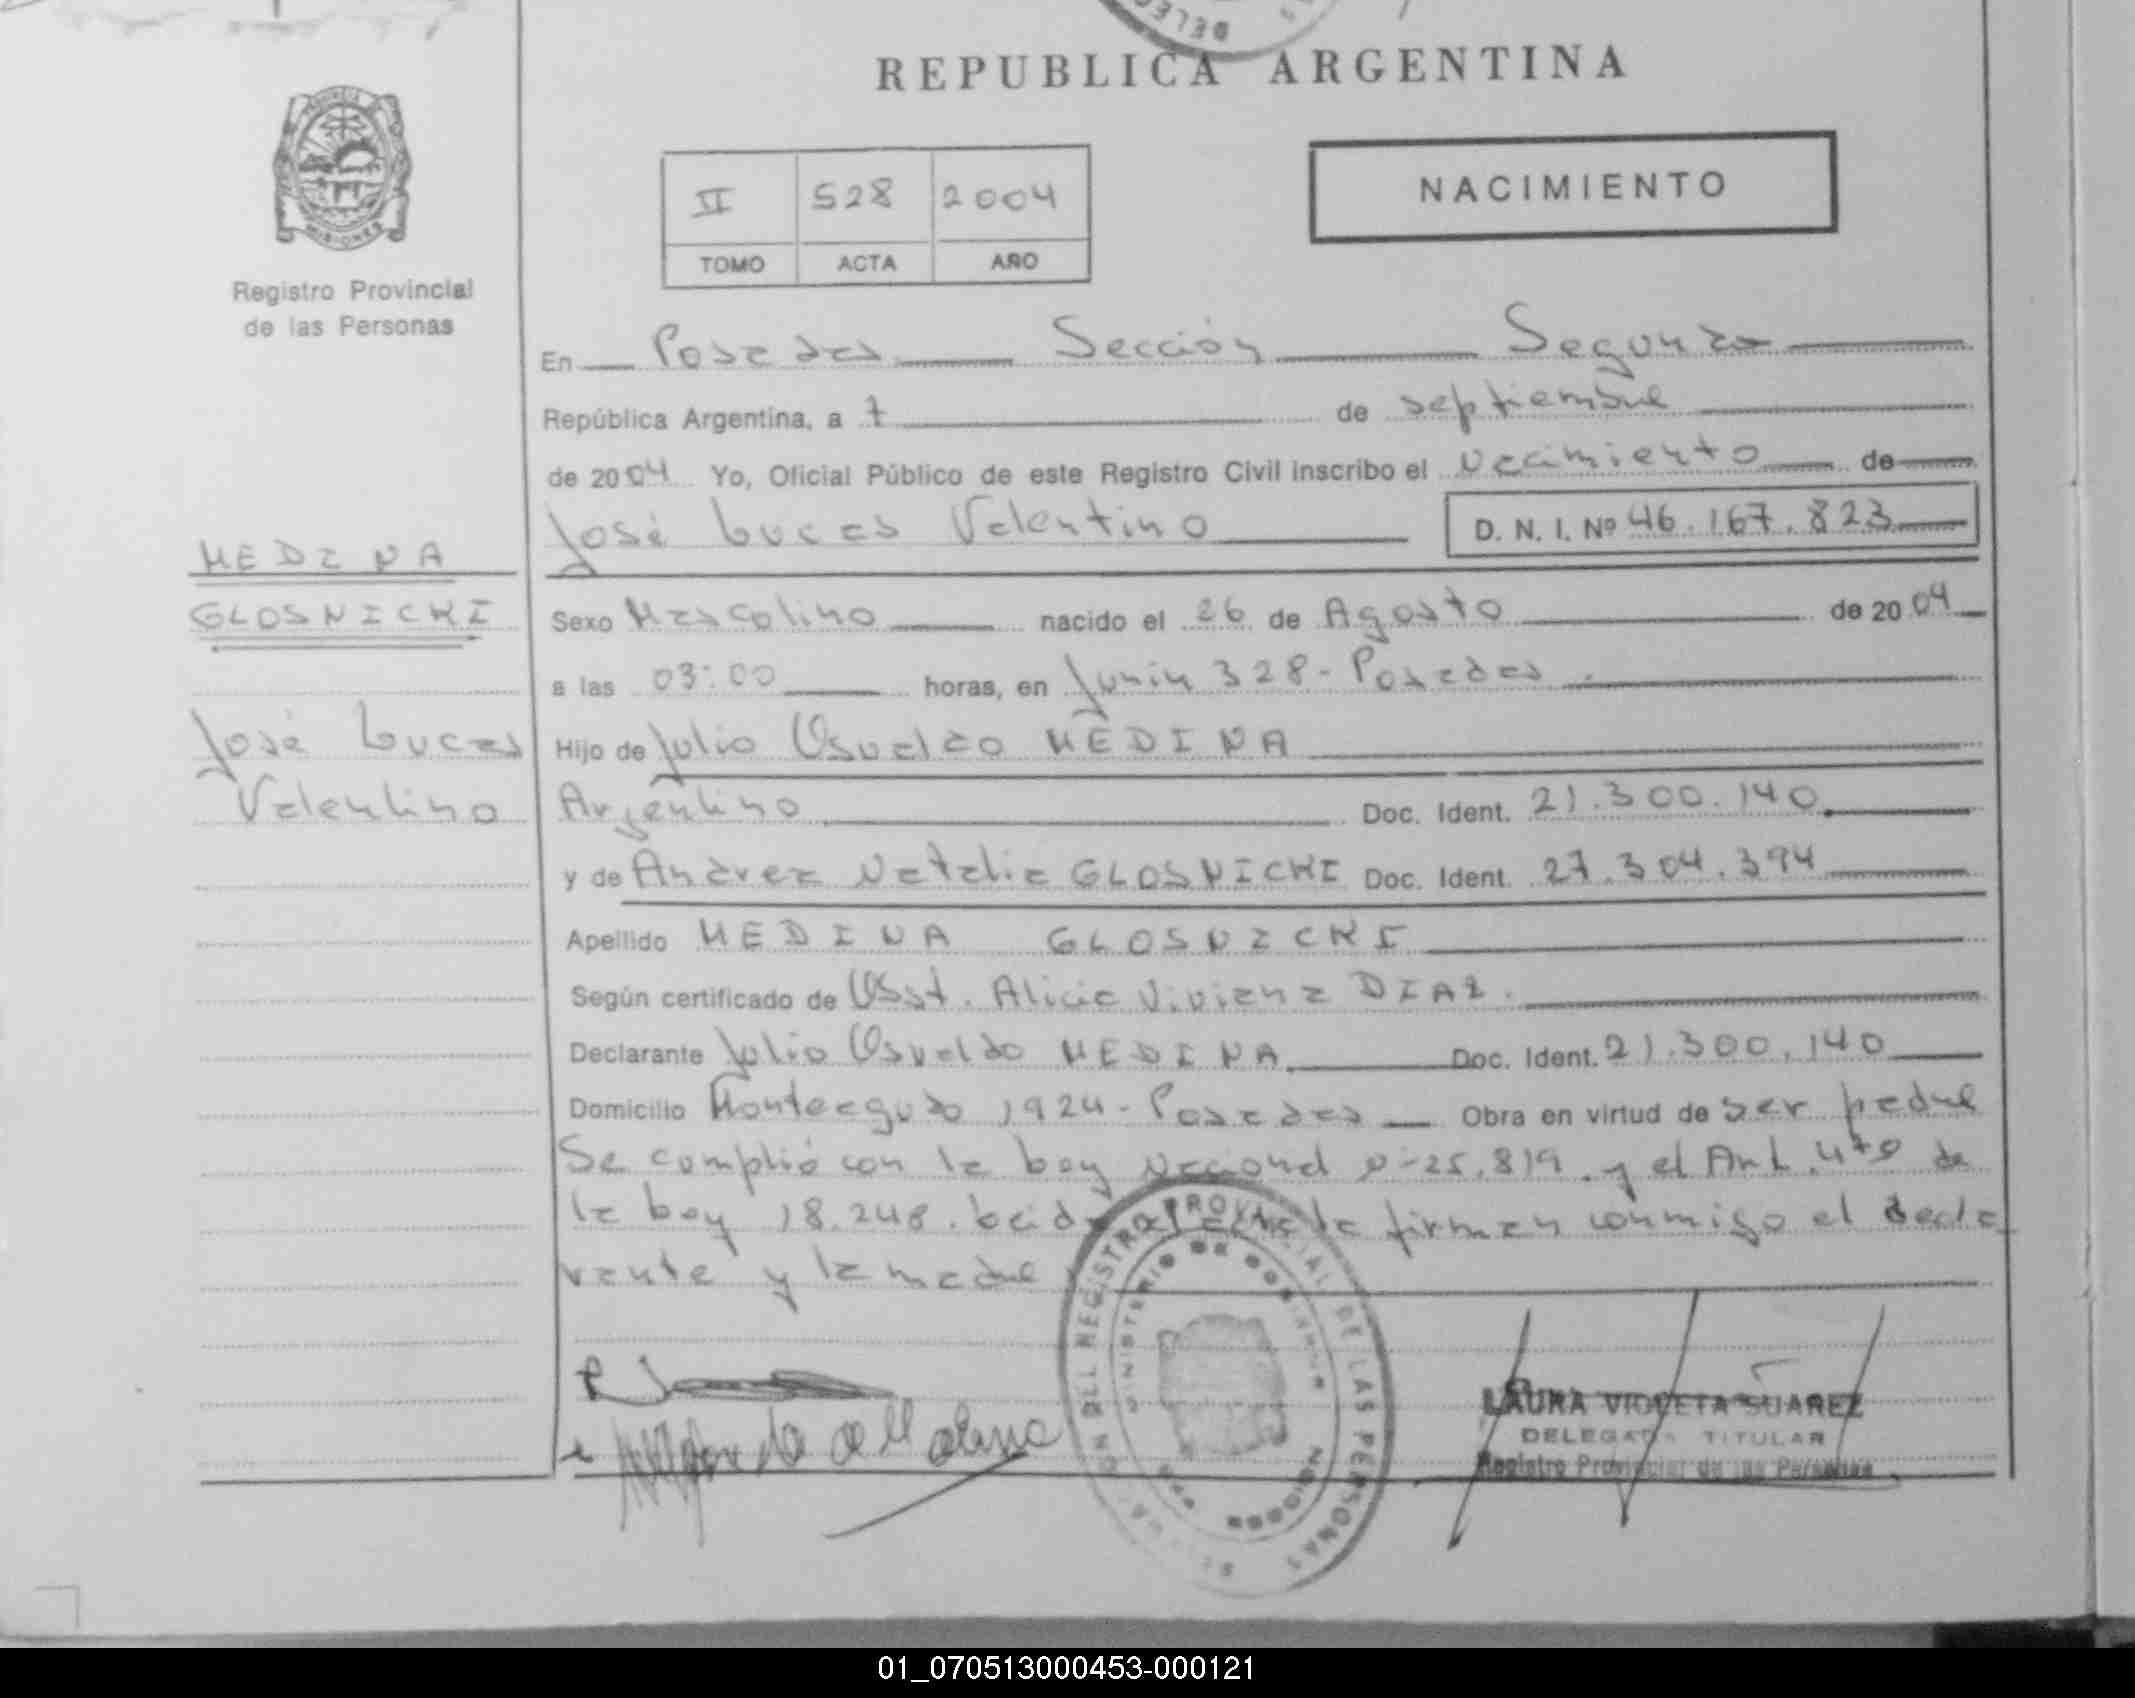 REPUBLICA ARGENTINA
PROVINCIA
MISIONES
Registro Provincial
de las Personas
II 528 2004
TOMO ACTA AÑO
NACIMIENTO
En Posadas Sección Segunda
República Argentina, a 7 de septiembre
de 2004 Yo, Oficial Público de este Registro Civil inscribo el nacimiento de
José Lucas Valentino D. N. I. Nº 46.167.823
MEDINA
GLOSNICKI
José Lucas
Valentino
Sexo Masculino nacido el 26 de Agosto de 2004
a las 03:00 horas, en Junín 328 - Posadas.
Hijo de Julio Osvaldo MEDINA
Argentino Doc. Ident. 21.300.140
y de Andrea Natalia GLOSNICKI Doc. Ident. 27.304.394
Apellido MEDINA GLOSNICKI
Según certificado de Obst. Alicia Viviana DIAZ.
Declarante Julio Osvaldo MEDINA Doc. Ident. 21.300.140
Domicilio Monteagudo 1924 - Posadas Obra en virtud de ser padre
Se complió con la Ley Nacional Nº 25.819 y el Art. 4to de
la Ley 18.248. Leida el acta la firman conmigo el decla
rante y la madre
DEL REGISTRO PROVINCIAL DE LAS PERSONAS
MINISTERIO DE GOBIERNO
LAURA VIOLETA SUAREZ
DELEGADA TITULAR
Registro Provincial de las Personas
01_070513000453-000121